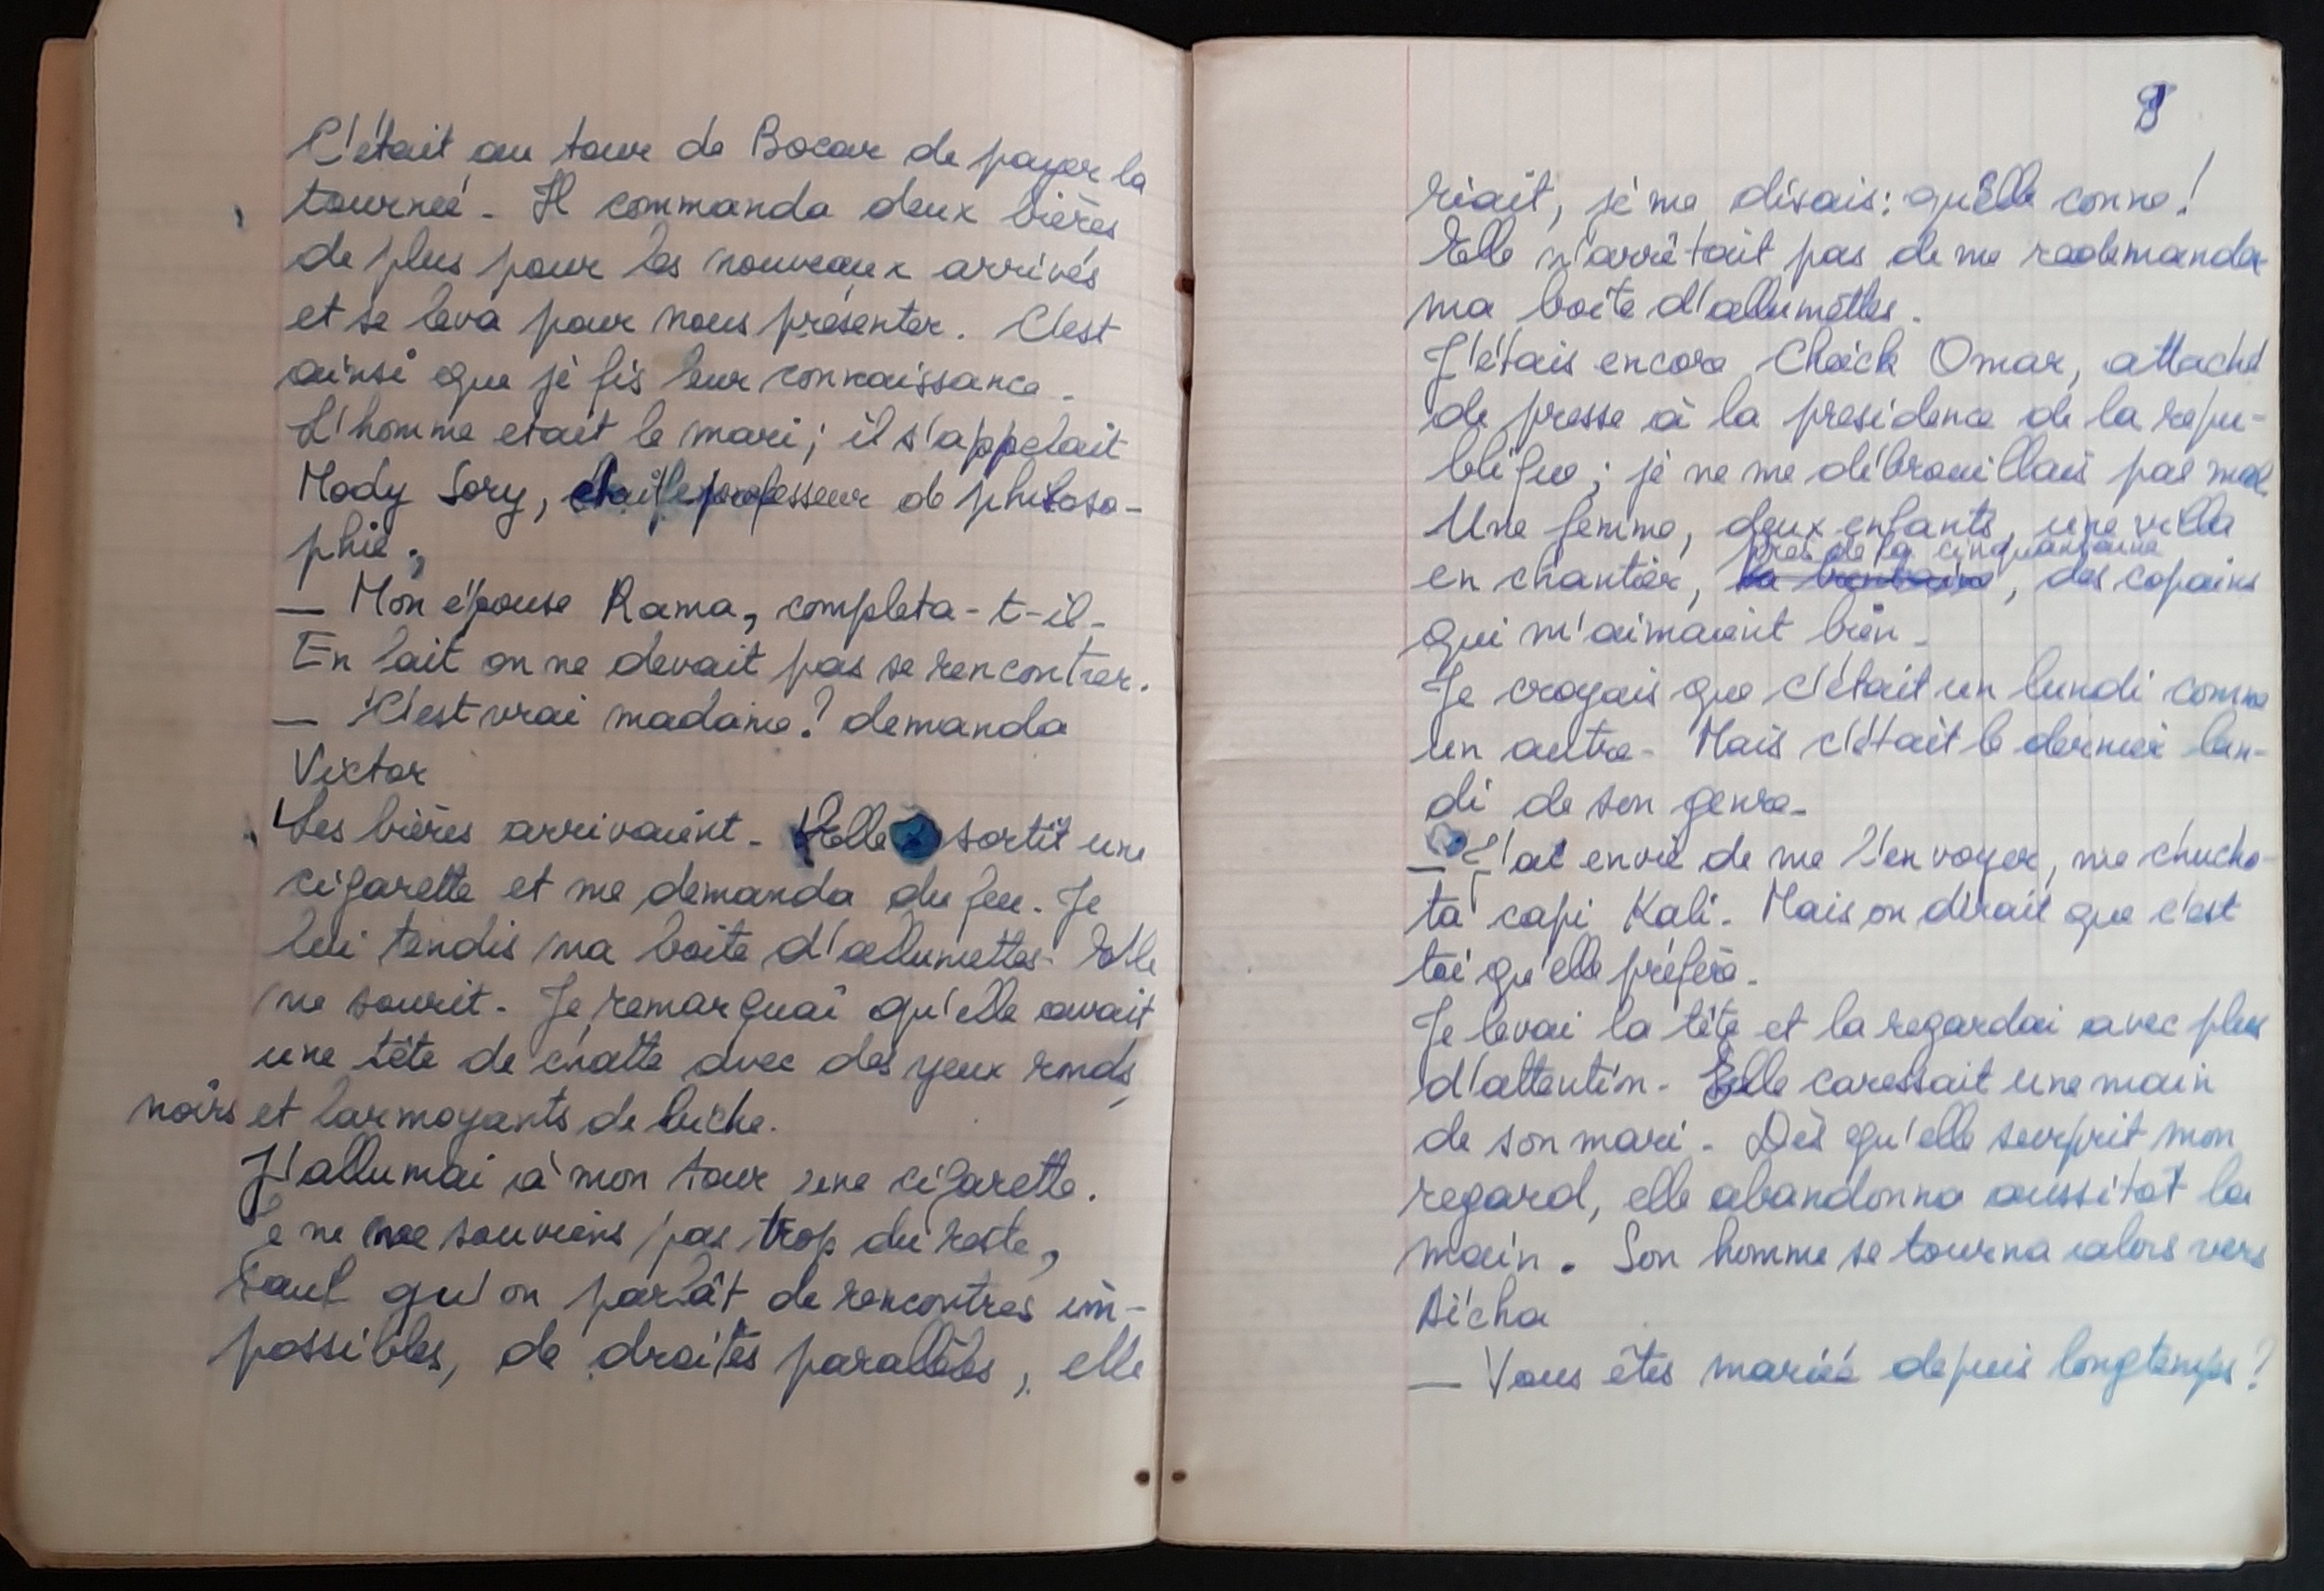 C'était au tour de Bocar de payer la
tourneé. Il commanda deux bières
de plus pour les nouveaux arrivés
et se leva pour nous présenter. C'est
ainsi que je fis leur connaissance.
L'homme etait le mari ; il s'appelait
Mody Sory, professeur de philoso-
phie.
— Mon épouse Rama, completa-t-il.
En fait on ne devait pas se rencontrer.
— C'est vrai madame ? demanda
Victor
Les bières arrivaient. Elle sortit une
cigarette et me demanda du feu. Je
lui tendis ma boite d'allumettes. Elle
me sourit. Je remarquai qu'elle avait
une tête de chatte avec des yeux ronds,
noirs et larmoyants de biche.
J'allumai à mon tour une cigarette.
Je ne me souviens pas trop du reste,
Sauf qu'on parlât de rencontres im-
possibles, de droites parallèles, elle
8
riait, je me disais : qu'Elle conne !
Elle n'arrêtait pas de me redemander
ma boite d'allumettes.
J'étais encore Cheick Omar, attaché
de presse à la presidence de la repu-
blique ; je ne me débrouillais pas mal.
Une femme, deux enfants, une villa
près de la cinquantaine
en chantier, la trentaine, des copains
qui m'aimaient bien.
Je croyais que c'était un lundi comme
un autre. Mais c'était le dernier lun-
di de son genre.
— J'ai envie de me l'envoyer, me chucho-
ta capi Kali. Mais on dirait que c'est
toi qu'elle préfère.
Je levai la tête et la regardai avec plus
d'attention. Elle caressait une main
de son mari. Dès qu'elle surprit mon
regard, elle abandonna aussitot la
main. Son homme se tourna alors vers
Aïcha
— Vous êtes mariée depuis longtemps ?